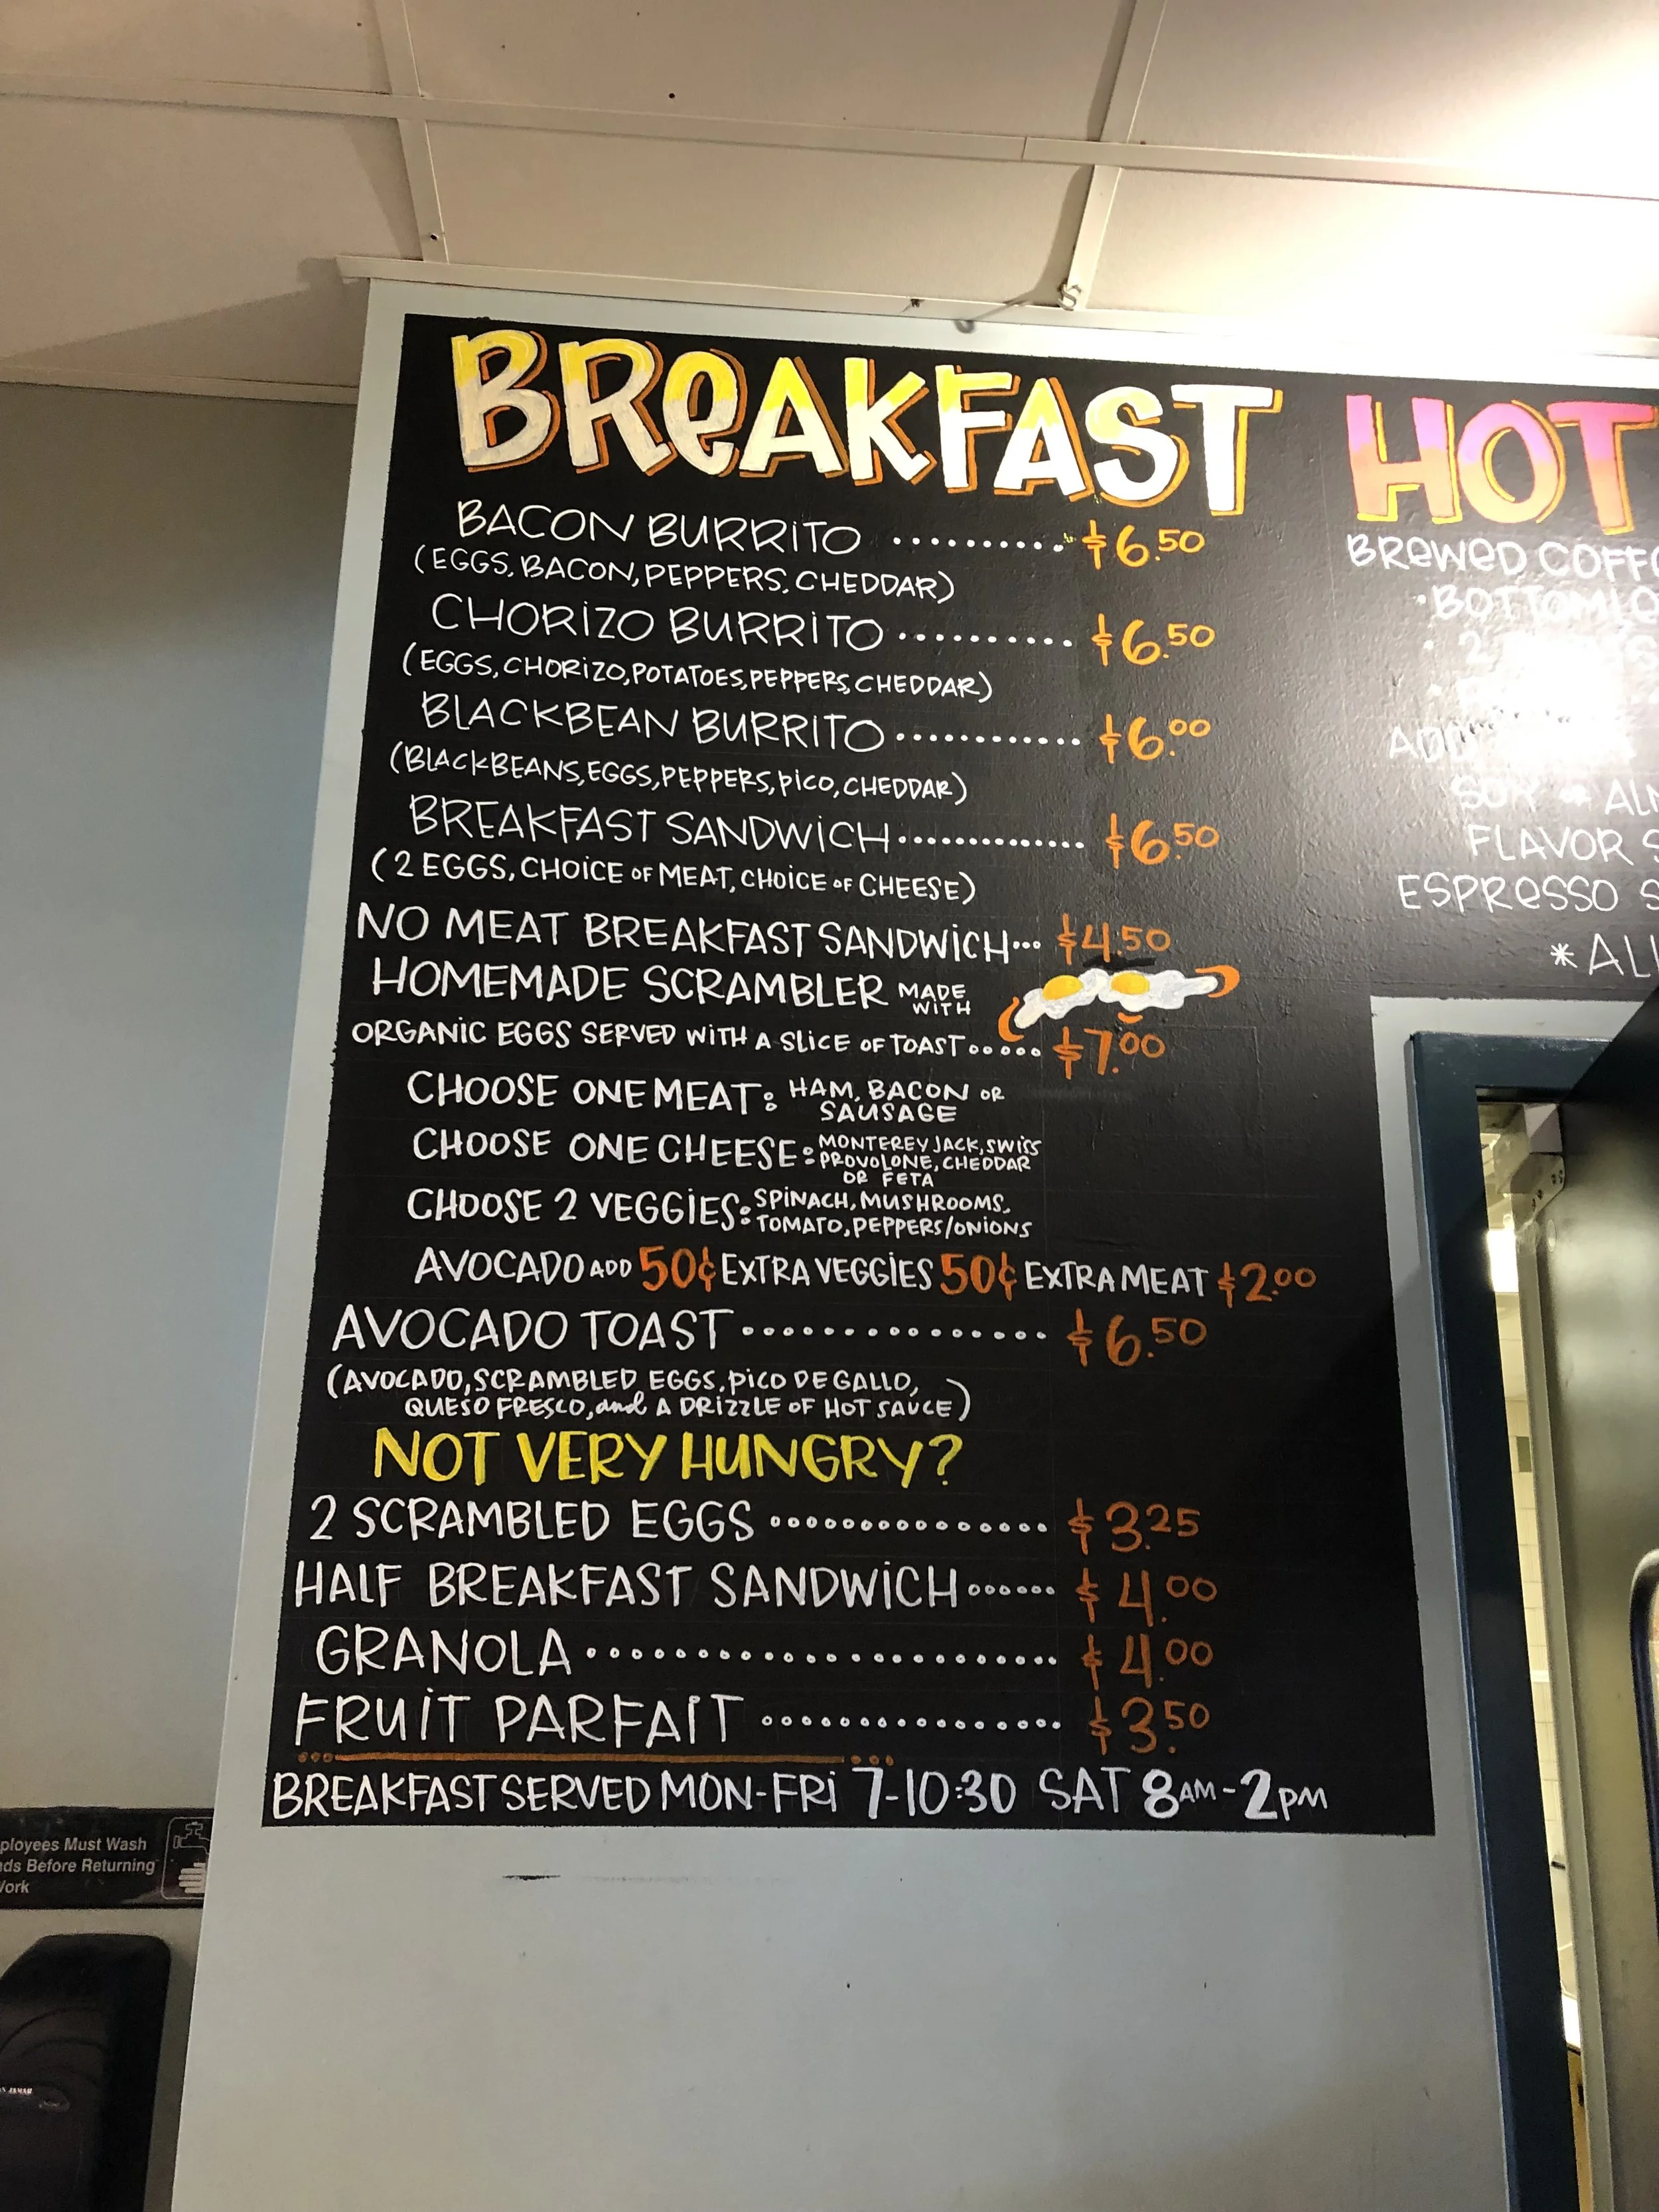 BREAKFAST
BACON BURRITO .......... $6.50
(EGGS, BACON, PEPPERS, CHEDDAR)
CHORIZO BURRITO .......... $6.50
(EGGS, CHORIZO, POTATOES, PEPPERS, CHEDDAR)
BLACKBEAN BURRITO ............ $6.00
(BLACKBEANS, EGGS, PEPPERS, PICO, CHEDDAR)
BREAKFAST SANDWICH ............. $6.50
(2 EGGS, CHOICE OF MEAT, CHOICE OF CHEESE)
NO MEAT BREAKFAST SANDWICH... $4.50
HOMEMADE SCRAMBLER MADE WITH
ORGANIC EGGS SERVED WITH A SLICE OF TOAST ..... $7.00
CHOOSE ONE MEAT: HAM, BACON OR
SAUSAGE
CHOOSE ONE CHEESE: MONTEREY JACK, SWISS
PROVOLONE, CHEDDAR
OR FETA
CHOOSE 2 VEGGIES: SPINACH, MUSHROOMS,
TOMATO, PEPPERS/ONIONS
AVOCADO ADD 50¢ EXTRA VEGGIES 50¢ EXTRA MEAT $2.00
AVOCADO TOAST ............... $6.50
(AVOCADO, SCRAMBLED EGGS, PICO DE GALLO,
QUESO FRESCO, and A DRIZZLE OF HOT SAUCE)
NOT VERY HUNGRY?
2 SCRAMBLED EGGS ............... $3.25
HALF BREAKFAST SANDWICH ...... $4.00
GRANOLA ...................... $4.00
FRUIT PARFAIT ................ $3.50
BREAKFAST SERVED MON-FRI 7-10:30 SAT 8AM-2PM
HOT
BREWED
FLAVOR
ESPRESSO
Must Wash
Before Returning